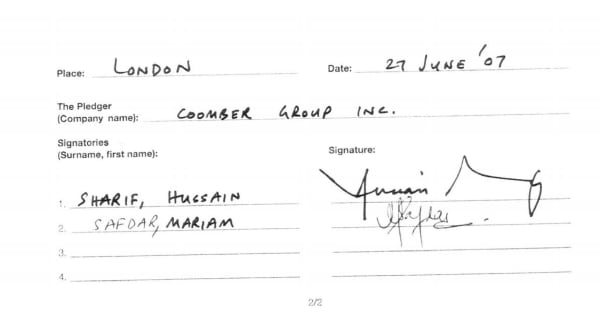 Place: LONDON Date: 27 JUNE '07
The Pledger
(Company name): COOMBER GROUP INC.
Signatories Signature:
(Surname, first name):
1. SHARIF, HUSSAIN
2. SAFDAR, MARIAM
3.
4.
2/2